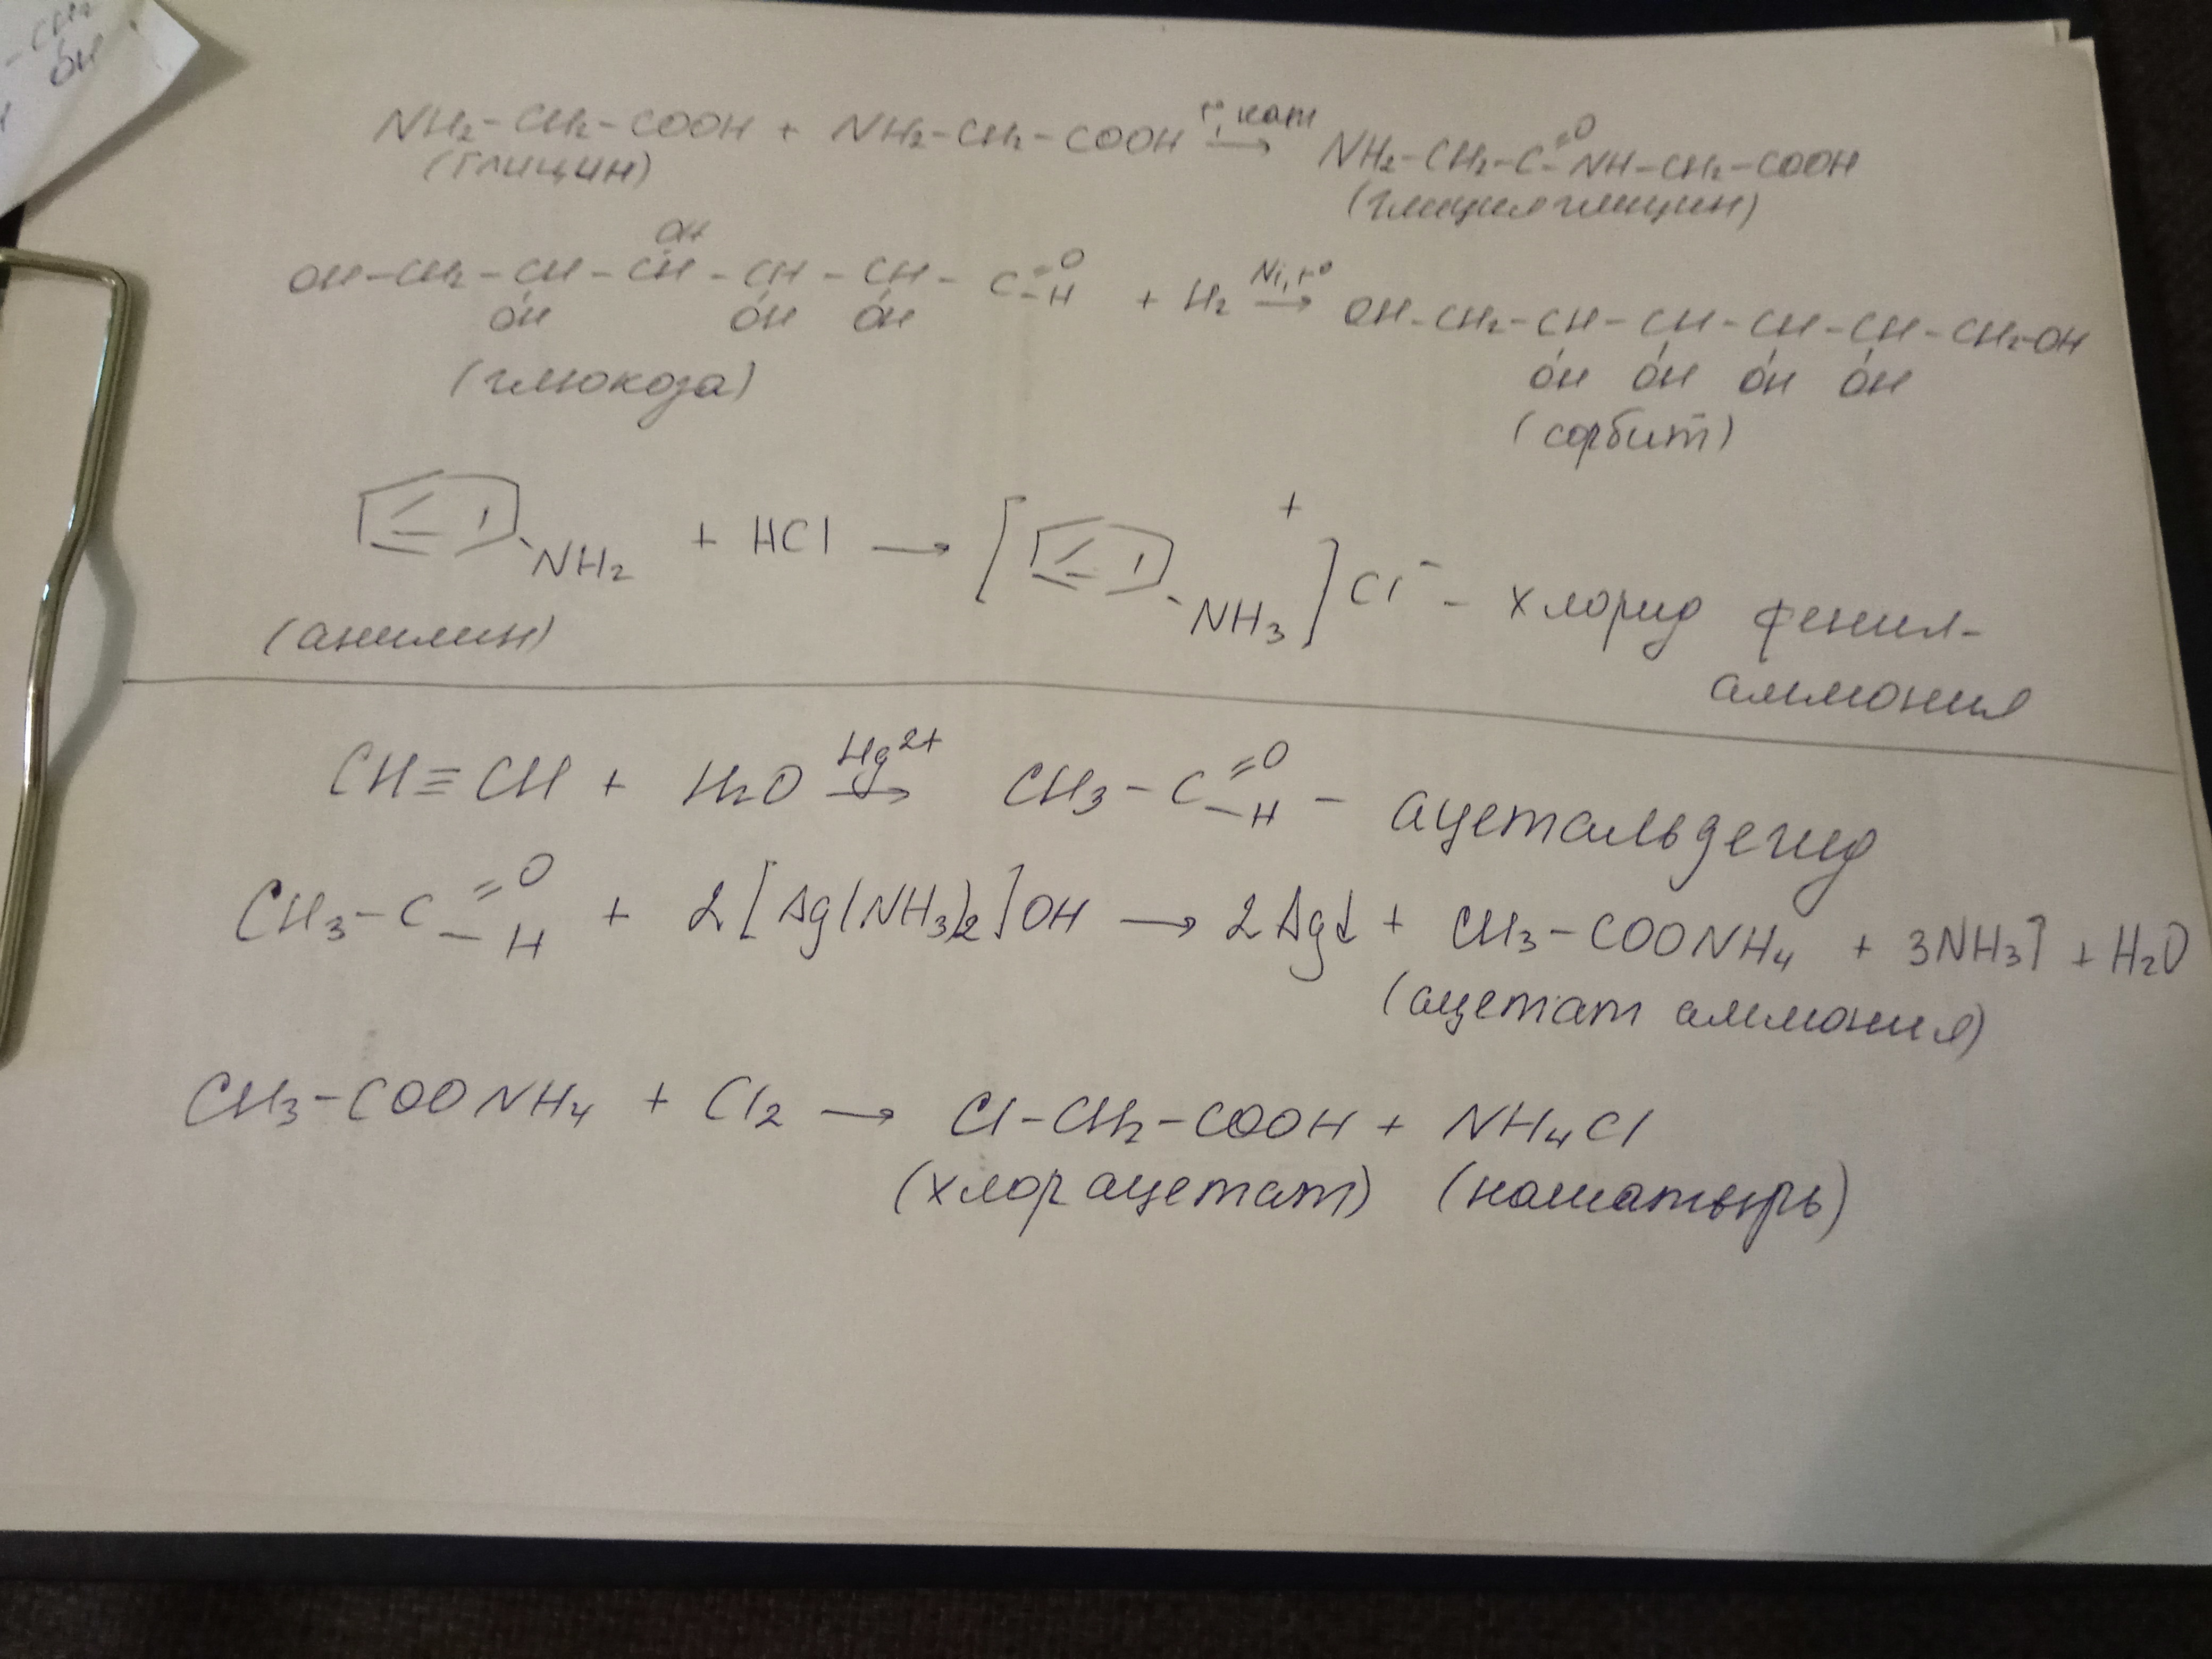 -CH₂
OH
NH₂-CH₂-COOH + NH₂-CH₂-COOH t°, кат → NH₂-CH₂-C=O-NH-CH₂-COOH
(глицин) (глицилглицин)
OH
OH-CH₂-CH-CH-CH-CH-C=O-H + H₂ Ni, t° → OH-CH₂-CH-CH-CH-CH-CH₂-OH
OH OH OH OH OH OH OH
(глюкоза) (сорбит)
NH₂ + HCl → [ NH₃ ]⁺ Cl⁻ - хлорид фенил-
(анилин) аммония
CH≡CH + H₂O Hg²⁺ → CH₃-C=O-H - ацетальдегид
CH₃-C=O-H + 2[Ag(NH₃)₂]OH → 2Ag↓ + CH₃-COONH₄ + 3NH₃↑ + H₂O
(ацетат аммония)
CH₃-COONH₄ + Cl₂ → Cl-CH₂-COOH + NH₄Cl
(хлорацетат) (нашатырь)